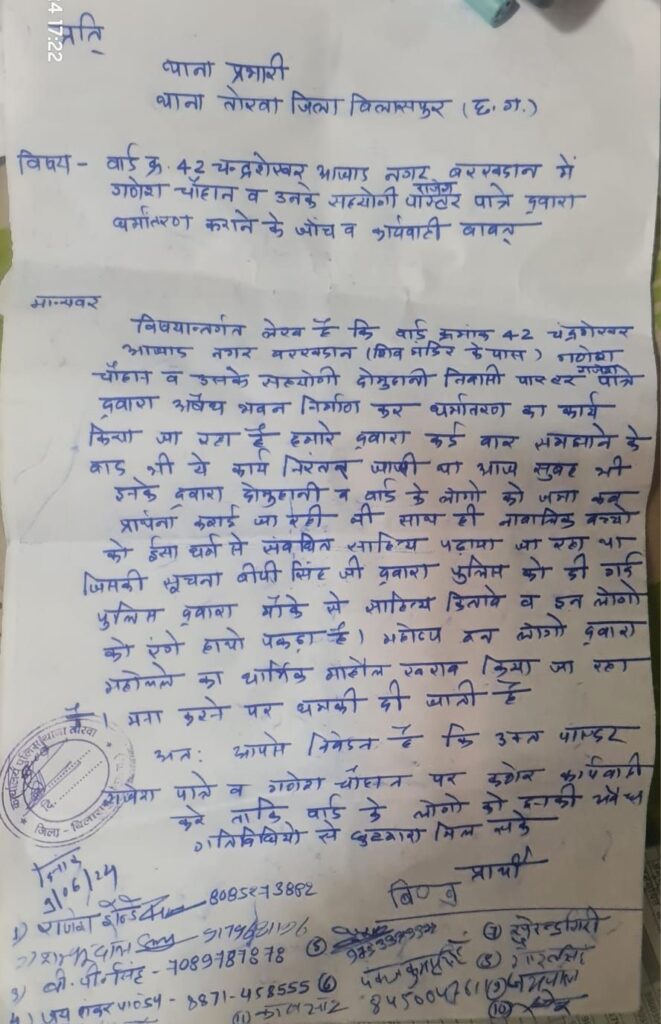 4 17:22
प्रति
थाना प्रभारी
थाना तोरवा जिला बिलासपुर (छ.ग.)
विषय - वार्ड क्र. 42 चन्द्रशेखर आजाद नगर बरखदान में
गणेश चौहान व उनके सहयोगी पास्टर राजेश पात्रे द्वारा
धर्मांतरण कराने के जाँच व कार्यवाही बाबत्
मान्यवर
विषयान्तर्गत लेख है कि वार्ड क्रमांक 42 चंद्रशेखर
आजाद नगर बरखदान (शिव मंदिर के पास) गणेश
चौहान व उसके सहयोगी दोमुहानी निवासी पास्टर राजेश पात्रे
द्वारा अवैध भवन निर्माण कर धर्मातरण का कार्य
किया जा रहा है हमारे द्वारा कई बार समझाने के
बाद भी ये कार्य निरंतर जारी था आज सुबह भी
इनके द्वारा दोमुहानी व वार्ड के लोगो को जमा कर
प्रार्थना कराई जा रही थी साथ ही नाबालिक बच्चो
को ईसा धर्म से संबंधित साहित्य पढ़ाया जा रहा था
जिसकी सूचना वीपी सिंह जी द्वारा पुलिस को दी गई
पुलिस द्वारा मौके से साहित्य किताबे व इन लोगो
को रंगे हाथो पकड़ा है। महोदय इन लोगो द्वारा
मोहल्ले का धार्मिक माहौल खराब किया जा रहा
है। मना करने पर धमकी दी जाती है
अतः आपसे निवेदन है कि उक्त पास्टर
राजेश पात्रे व गणेश चौहान पर कठोर कार्यवाही
करे ताकि वार्ड के लोगो को इनकी अवैध
गतिविधियो से छुटकारा मिल सके
प्रार्थी
/06/24
1) राजेश 8085273882
3) वी. पी. सिंह - 7089787878 (5) (7)
4) जय शंकर पाण्डे - 8871-458555 (6) पंकज कुमार सिंह (8)
(11) (10)